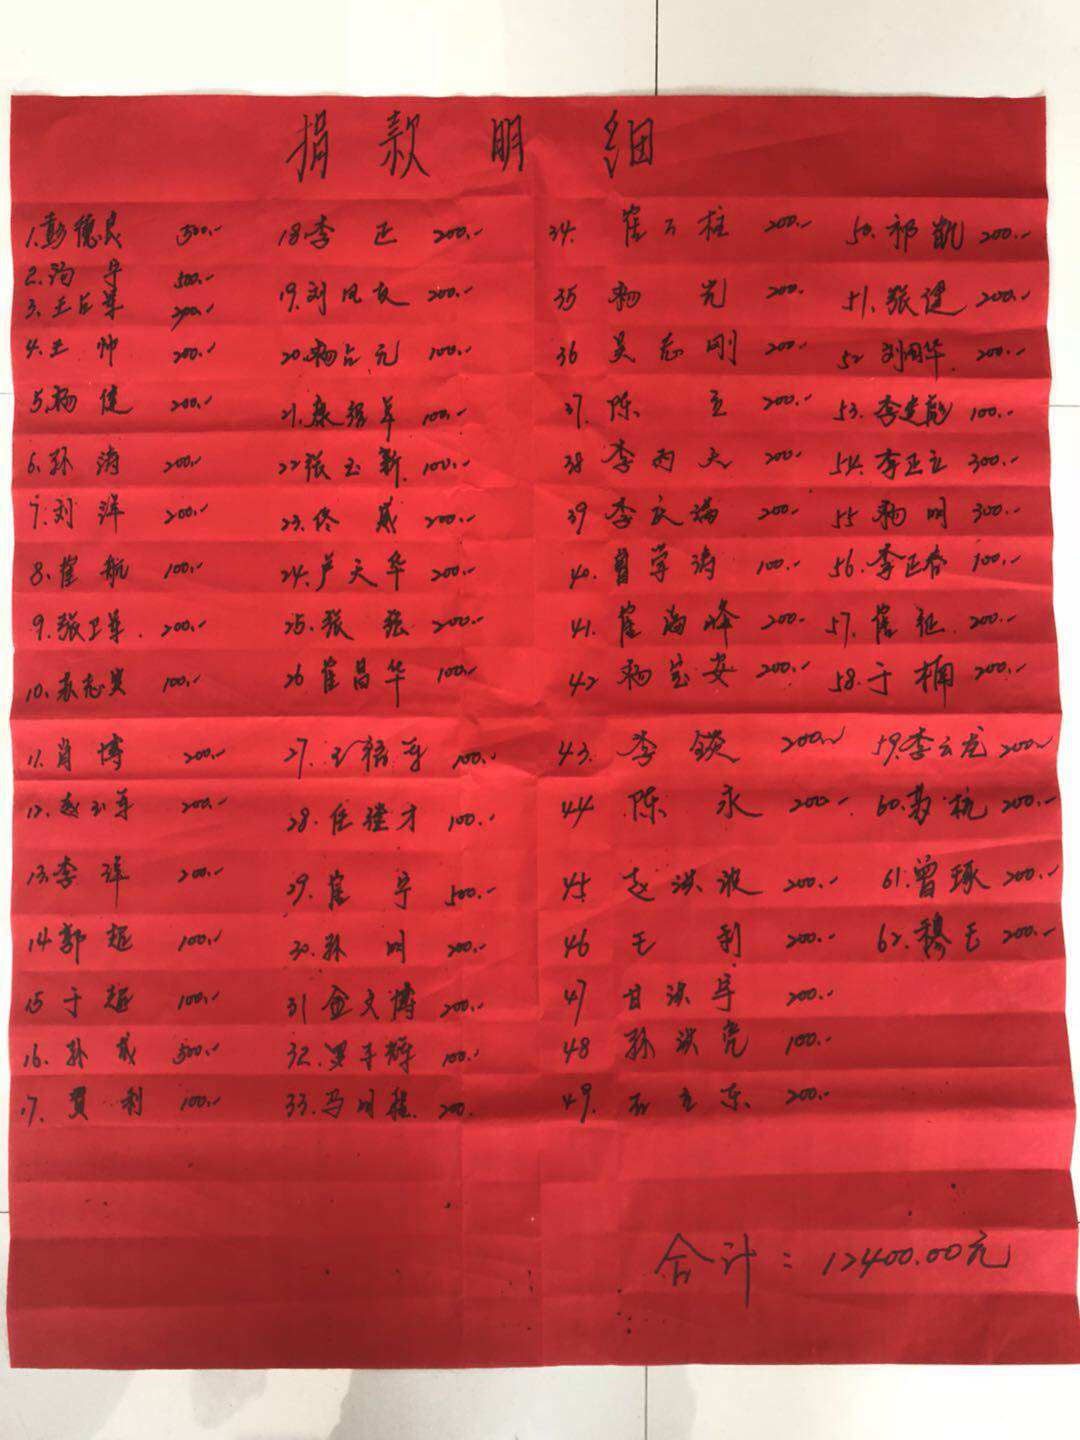 捐款明细
1.彭德良 500.-
2.冯军 500.-
3.王占军 200.-
4.王帅 200.-
5.杨健 200.-
6.孙涛 200.-
7.刘洋 200.-
8.崔航 100.-
9.张卫军 200.-
10.苏志昊 100.-
11.肖博 200.-
12.赵玉军 200.-
13.李洋 200.-
14.郭超 100.-
15.于超 100.-
16.孙威 500.-
17.贾利 100.-
18.李正 200.-
19.刘凤友 200.-
20.杨占元 100.-
21.康绍军 100.-
22.张玉新 100.-
23.佟威 200.-
24.卢天华 200.-
25.张强 200.-
26.崔昌华 100.-
27.王福军 100.-
28.任 才 100.-
29.崔宇 500.-
30.孙明 200.-
31.金文博 200.-
32.罗手辉 100.-
33.马明程 200.
34.崔云柱 200.-
35 杨光 200.-
36 吴志刚 200.-
37.陈立 200.-
38 李丙天 200.-
39 李庆瑞 200.-
40.曾学涛 100.-
41.崔海峰 200.-
42.杨宝安 200.-
43.李锁 200.-
44 陈永 200-
45 赵洪波 200.-
46 王利 200.-
47 甘洪宇 200.-
48 孙洪亮 100.-
49.石立东 200.-
50.祁凯 200.-
51.张健 200.-
52 刘国华 200.-
53.李建彪 100.-
54.李正立 300.-
55 杨明 300.-
56.李正春 100.-
57.崔征 200.-
58.于楠 200.-
59.李云龙 200-
60.苏杭 200.-
61.曾琢 200.-
62.穆王 200.-
合计：12400.00元